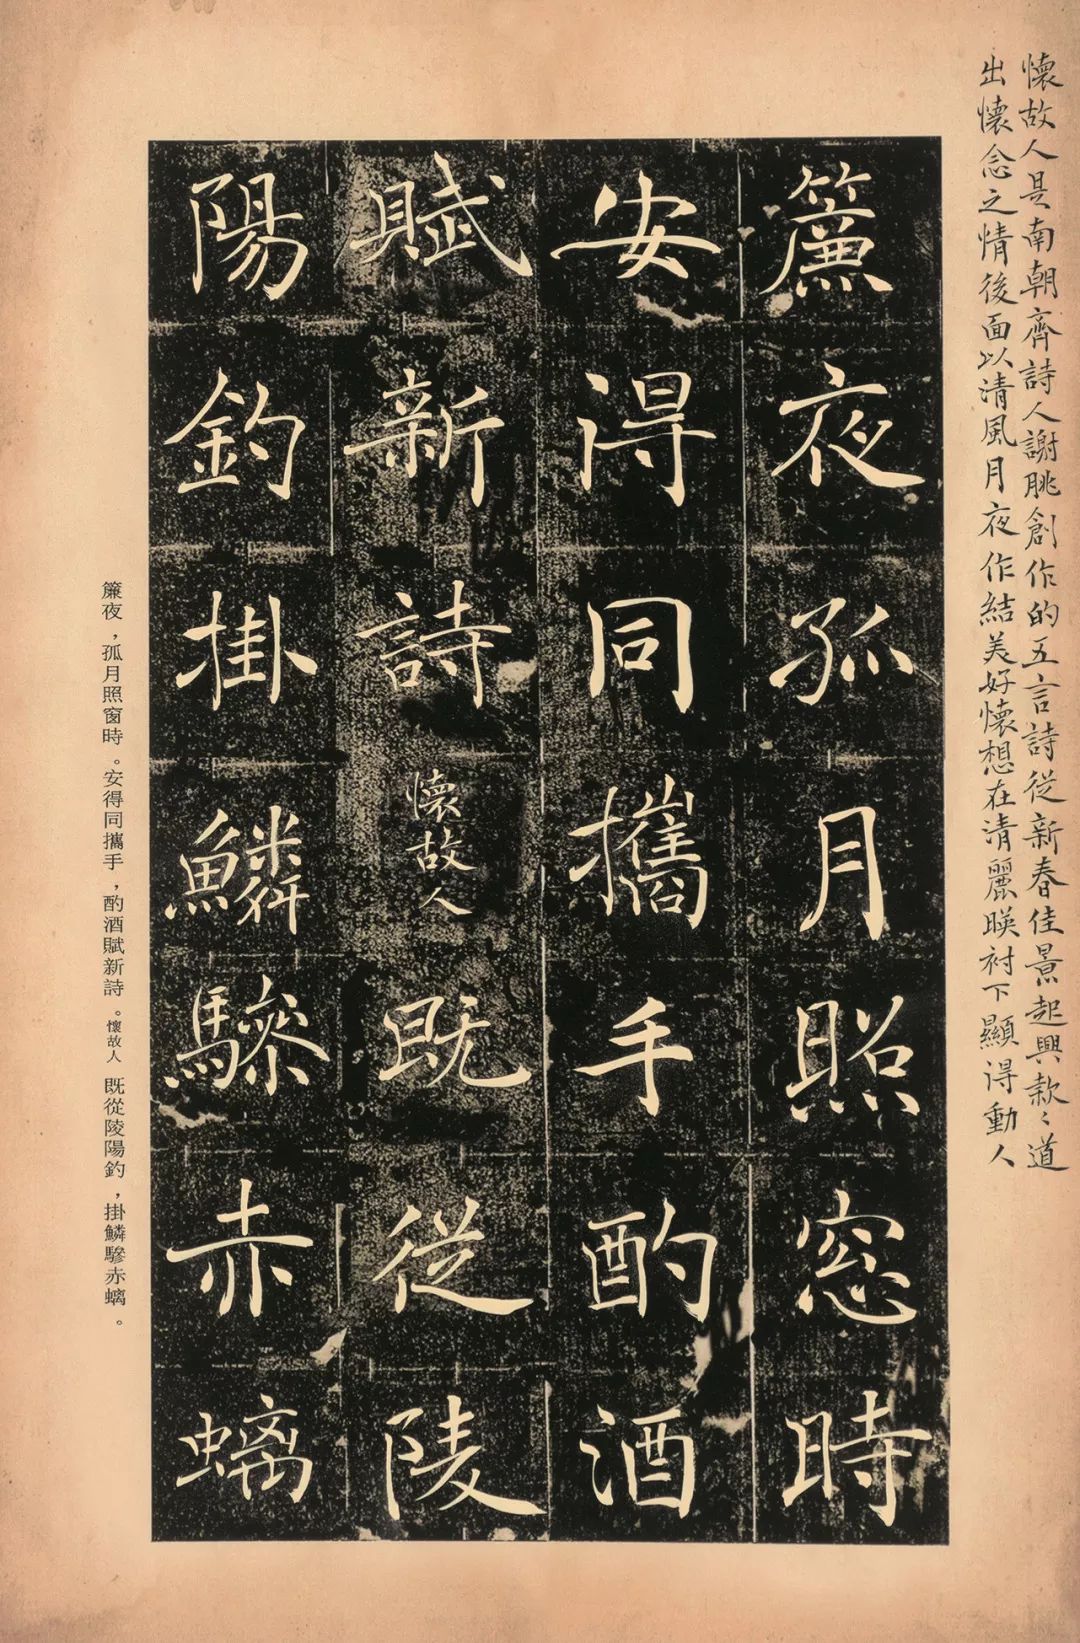 懷故人是南朝齊詩人謝朓創作的五言詩從新春佳景起興款〻道
出懷念之情後面以清風月夜作結美好懷想在清麗暎衬下顯得動人
簾夜孤月照窓時
安得同攜手酌酒
賦新詩懷故人既從陵
陽釣掛鱗驂赤螭
簾夜，孤月照窗時。安得同攜手，酌酒賦新詩。懷故人 既從陵陽釣，掛鱗驂赤螭。